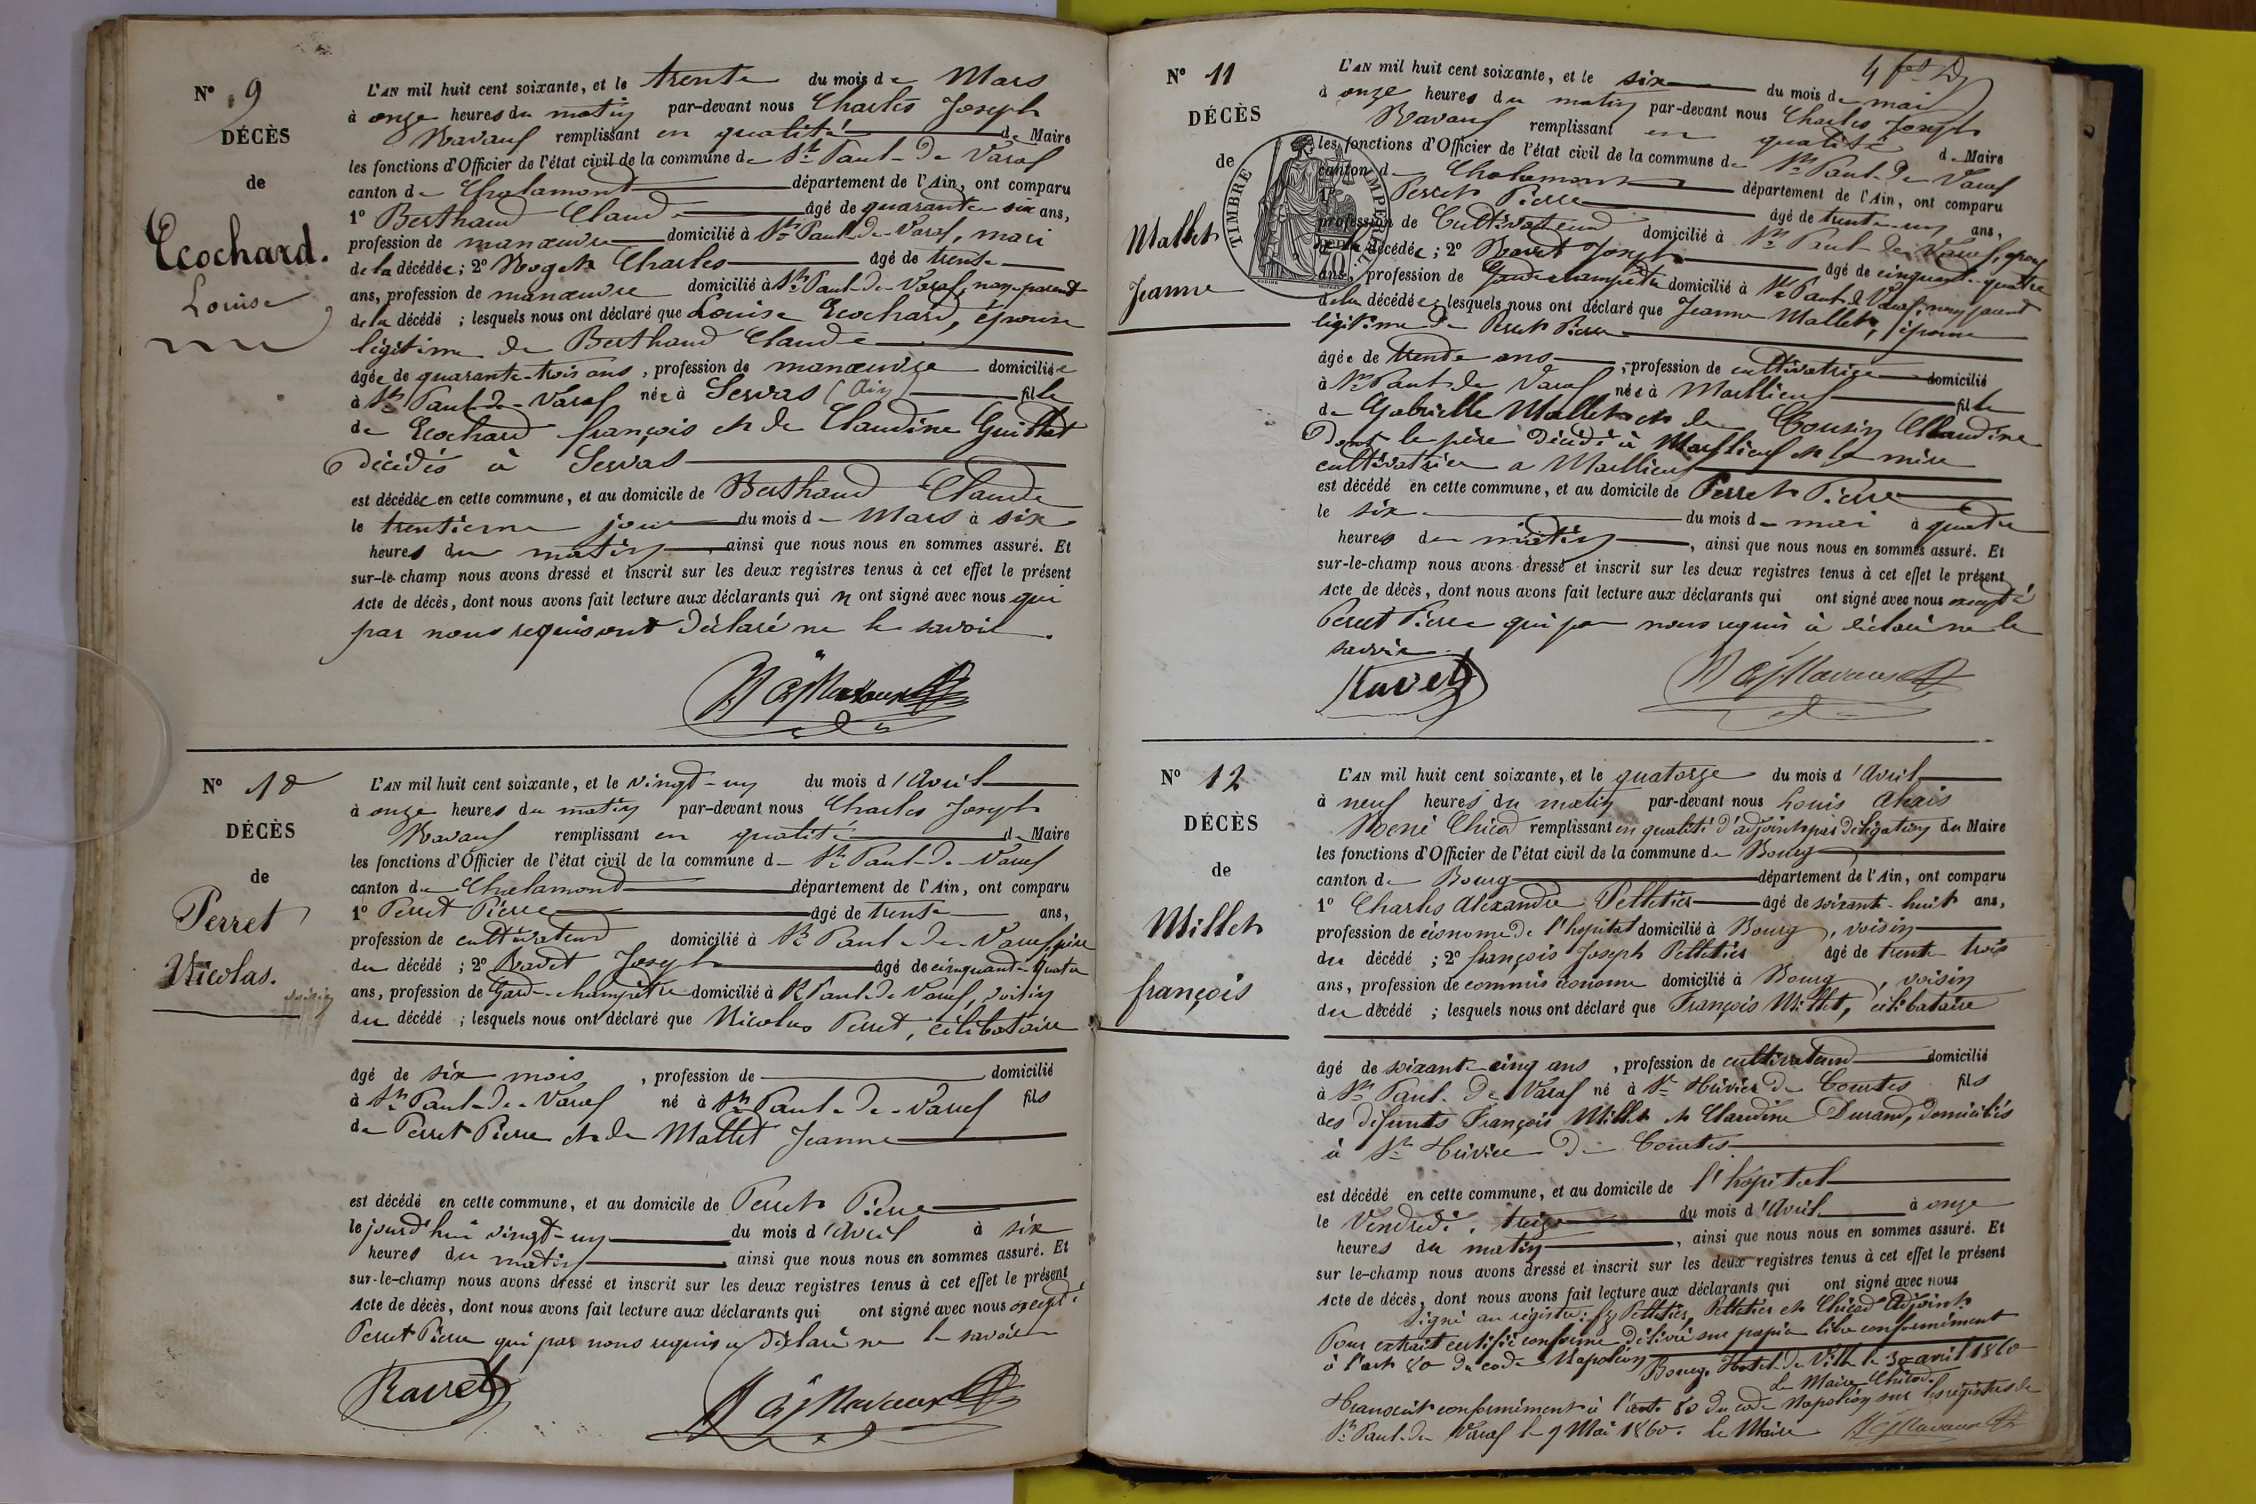 N° 9
DÉCÈS
de
Ecochard.
Louise
L'AN mil huit cent soixante, et le trente du mois de Mars
à onze heures du matin par-devant nous Charles Joseph
Ravaux remplissant en qualité de Maire
les fonctions d'Officier de l'état civil de la commune de St Paul-de-Varax
canton de Chalamont département de l'Ain, ont comparu
1° Berthaud Claude âgé de quarante six ans,
profession de manœuvre domicilié à St Paul-de-Varax, mari
de la décédée; 2° Roget Charles âgé de trente
ans, profession de manœuvre domicilié à St Paul-de-Varax, non parent
de la décédé ; lesquels nous ont déclaré que Louise Ecochard, épouse
légitime de Berthaud Claude
âgée de quarante-trois ans, profession de manœuvre domiciliée
à St Paul-de-Varax née à Servas (Ain) fille
de Ecochard françois et de Claudine Guillot
décédés à Servas
est décédée en cette commune, et au domicile de Berthaud Claude
le trentième jour du mois de Mars à six
heures du matin, ainsi que nous nous en sommes assuré. Et
sur-le-champ nous avons dressé et inscrit sur les deux registres tenus à cet effet le présent
Acte de décès, dont nous avons fait lecture aux déclarants qui n ont signé avec nous qui
par nous requis ont déclaré ne le savoir.
Ravaux
N° 10
DÉCÈS
de
Perret
Nicolas.
voisin
L'AN mil huit cent soixante, et le vingt-un du mois d'Avril
à onze heures du matin par-devant nous Charles Joseph
Ravaux remplissant en qualité de Maire
les fonctions d'Officier de l'état civil de la commune de St Paul-de-Varax
canton de Chalamont département de l'Ain, ont comparu
1° Perret Pierre âgé de trente ans,
profession de cultivateur domicilié à St Paul-de-Varax, père
du décédé ; 2° Ravet Joseph âgé de cinquante-quatre
ans, profession de Garde-champêtre domicilié à St Paul-de-Varax, voisin
du décédé ; lesquels nous ont déclaré que Nicolas Perret, célibataire
âgé de six mois, profession de domicilié
à St Paul-de-Varax né à St Paul-de-Varax fils
de Perret Pierre et de Mallet Jeanne
est décédé en cette commune, et au domicile de Perret Pierre
le jourd'hui vingt-un du mois d'Avril à six
heures du matin, ainsi que nous nous en sommes assuré. Et
sur-le-champ nous avons dressé et inscrit sur les deux registres tenus à cet effet le présent
Acte de décès, dont nous avons fait lecture aux déclarants qui ont signé avec nous excepté
Perret Pierre qui par nous requis a déclaré ne le savoir
Ravet
Ravaux
N° 11
DÉCÈS
de
Mallet
Jeanne
TIMBRE IMPÉRIAL
L'AN mil huit cent soixante, et le six du mois de mai
à onze heures du matin par-devant nous Charles Joseph
Ravaux remplissant en qualité de Maire
les fonctions d'Officier de l'état civil de la commune de St Paul-de-Varax
canton de Chalamont département de l'Ain, ont comparu
1° Perret Pierre âgé de trente-un ans,
profession de Cultivateur domicilié à St Paul-de-Varax, époux
de la décédée; 2° Ravet Joseph âgé de cinquante-quatre
ans, profession de Garde-champêtre domicilié à St Paul-de-Varax, non parent
de la décédée; lesquels nous ont déclaré que Jeanne Mallet, épouse
légitime de Perret Pierre
âgée de trente ans, profession de cultivatrice domicilié
à St Paul-de-Varax née à Marlieux fille
de Gabrielle Mallet et de Cousin Claudine
Dont le père décédé à Marlieux et la mère
cultivatrice a Marlieux
est décédé en cette commune, et au domicile de Perret Pierre
le six du mois de mai à quatre
heures du matin, ainsi que nous nous en sommes assuré. Et
sur-le-champ nous avons dressé et inscrit sur les deux registres tenus à cet effet le présent
Acte de décès, dont nous avons fait lecture aux déclarants qui ont signé avec nous excepté
Perret Pierre qui par nous requis à déclaré ne le
savoir.
Ravet
Ravaux
N° 12
DÉCÈS
de
Millet
françois
L'AN mil huit cent soixante, et le quatorze du mois d'Avril
à neuf heures du matin par-devant nous Louis
René Chicod remplissant en qualité d'adjoint par délégation du Maire
les fonctions d'Officier de l'état civil de la commune de Bourg
canton de Bourg département de l'Ain, ont comparu
1° Charles Alexandre Pelletier âgé de soixante-huit ans,
profession de économe de l'hopital domicilié à Bourg, voisin
du décédé ; 2° françois Joseph Pelletier âgé de trente trois
ans, profession de commis économe domicilié à Bourg, voisin
du décédé ; lesquels nous ont déclaré que François Millet, célibataire
âgé de soixante-cinq ans, profession de cultivateur domicilié
à St Paul-de-Varax né à St Trivier de Courtes fils
des défunts François Millet et Claudine Durand, domiciliés
à St Trivier de Courtes
est décédé en cette commune, et au domicile de l'hopital
le Vendredi, treize du mois d'Avril à onze
heures du matin, ainsi que nous nous en sommes assuré. Et
sur le-champ nous avons dressé et inscrit sur les deux registres tenus à cet effet le présent
Acte de décès, dont nous avons fait lecture aux déclarants qui ont signé avec nous
Signé au registre: Pelletier, Pelletier et Chicod Adjoint
Pour extrait certifié conforme délivré sur papier libre conformément
à l'art 80 du code Napoléon Bourg, Hotel de Ville le 30 avril 1860
Le Maire Chicod
Transcrit conformément à l'art. 80 du code Napoléon sur les registres de
St Paul-de-Varax le 9 Mai 1860. Le Maire Ravaux